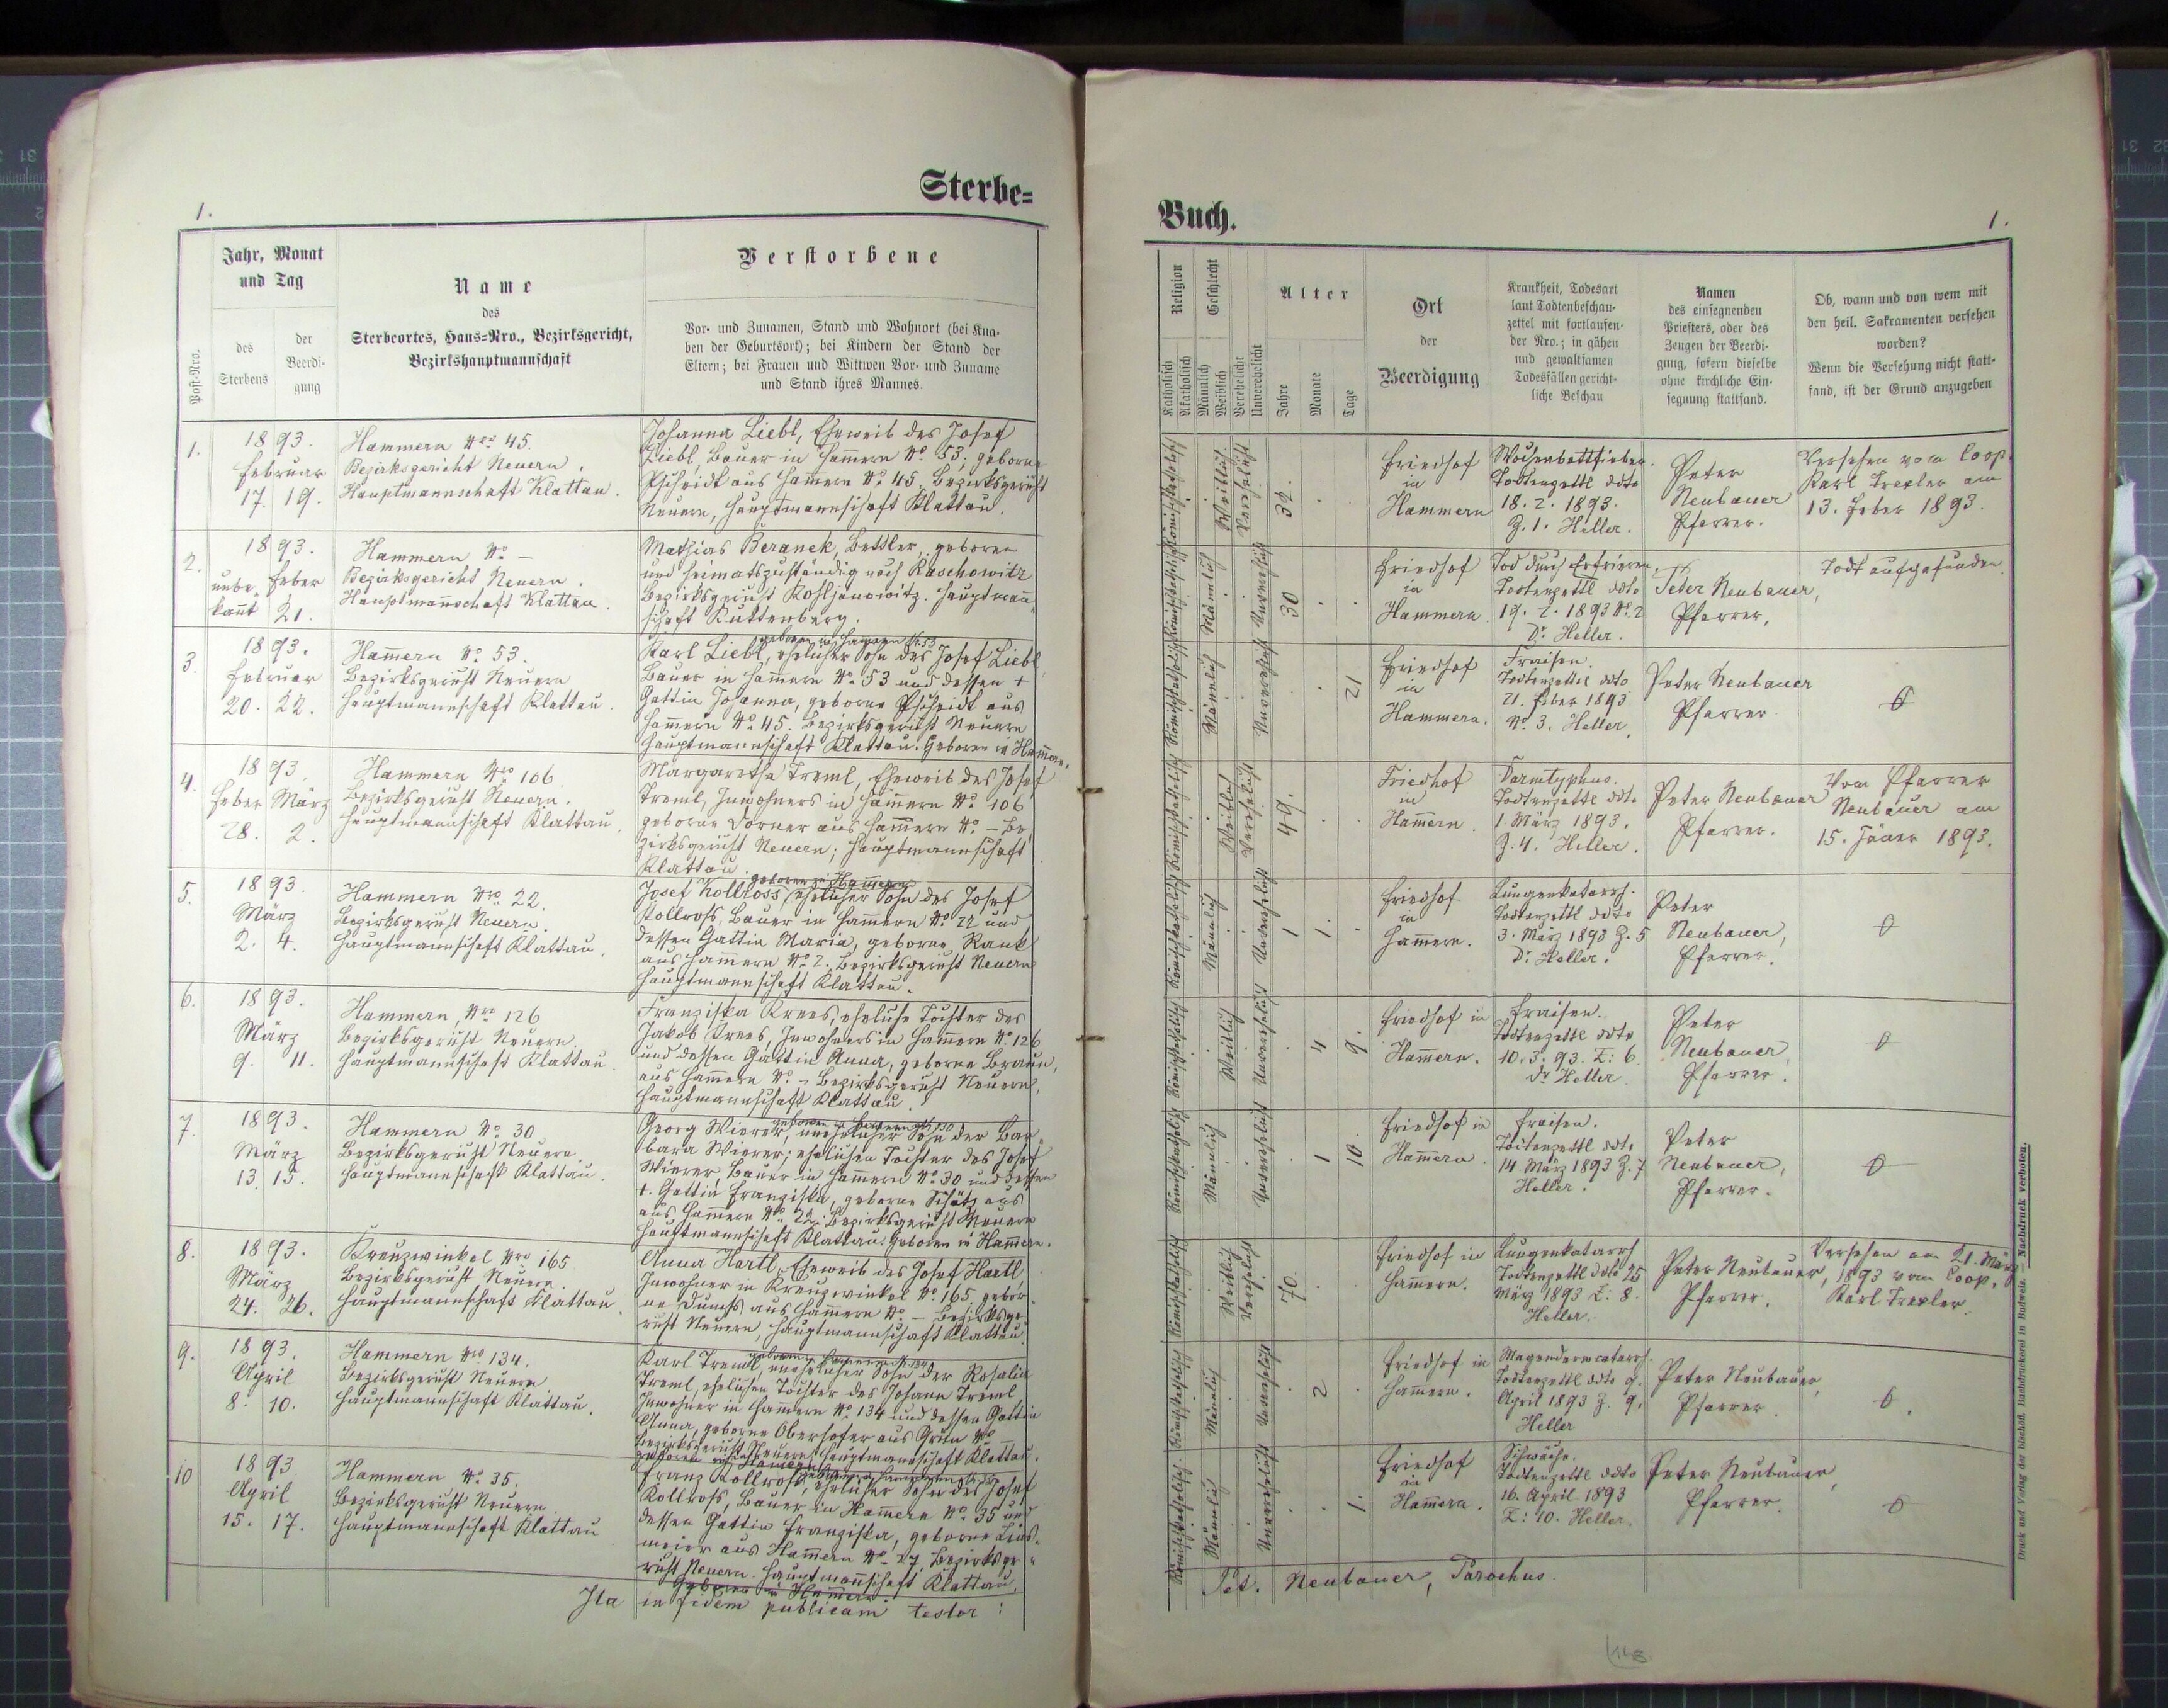 Sterbe=
1.
Jahr, Monat
und Tag
des
Sterbens
der
Beerdi-
gung
Post-Nro.
Name
des
Sterbeortes, Haus-Nro., Bezirksgericht,
Bezirkshauptmannschaft
Verstorbene
Vor- und Zunamen, Stand und Wohnort (bei Kna-
ben der Geburtsort); bei Kindern der Stand der
Eltern; bei Frauen und Wittwen Vor- und Zuname
und Stand ihres Mannes.
1.
1893.
Februar
17. 19.
Hammern Nro 45.
Bezirksgericht Neuern.
Hauptmannschaft Klattau.
Johanna Liebl, Eheweib des Josef
Liebl, Bauer in Hammern No. 53, geborne
Pscheidt aus Hammern No. 45. Bezirksgericht
Neuern, Hauptmannschaft Klattau.
2.
1893.
unbe- Feber
kannt 21.
Hammern No. -
Bezirksgericht Neuern.
Hauptmannschaft Klattau.
Mathias Beranek, Bettler, geboren
und heimatszuständig nach Raschowitz
Bezirksgericht Kohljanowitz. Hauptmann-
schaft Kuttenberg.
3.
1893.
Februar
20. 22.
Hammern No. 53.
Bezirksgericht Neuern
Hauptmannschaft Klattau.
geboren in Hammern No. 53
Karl Liebl, ehelicher Sohn des Josef Liebl
Bauer in Hammern No. 53 und dessen +
Gattin Johanna, geborne Pscheidt aus
Hammern No. 45. Bezirksgericht Neuern
Hauptmannschaft Klattau. Geboren in Hammern.
4.
1893.
Feber März
28. 2.
Hammern Nro 106
Bezirksgericht Neuern.
Hauptmannschaft Klattau.
Margaretha Treml, Eheweib des Josef
Treml, Inwohners in Hammern No. 106
geborne Dorner aus Hammern No. - Be-
zirksgericht Neuern; Hauptmannschaft
Klattau.
5.
1893.
März
2. 4.
Hammern Nro 22.
Bezirksgericht Neuern.
Hauptmannschaft Klattau.
geboren zu Hammern
Josef Kollross, ehelicher Sohn des Josef
Kollross, Bauer in Hammern No. 22 und
dessen Gattin Maria, geborne Rank
aus Hammern No. 2. Bezirksgericht Neuern
Hauptmannschaft Klattau.
6.
1893.
März
9. 11.
Hammern, Nro 126
Bezirksgericht Neuern.
Hauptmannschaft Klattau.
Franziska Krees, eheliche Tochter des
Jakob Krees, Inwohners in Hammern No. 126
und dessen Gattin Anna, geborne Braun,
aus Hammern No. - Bezirksgericht Neuern,
Hauptmannschaft Klattau.
7.
1893.
März
13. 15.
Hammern No. 30
Bezirksgericht Neuern.
Hauptmannschaft Klattau.
Georg Wierer, unehelicher Sohn der Bar-
bara Wierer; ehelichen Tochter des Josef
Wierer, Bauer in Hammern No. 30 und dessen
+. Gattin Franziska, geborne Schätz aus
aus Hammern No. 22. Bezirksgericht Neuern
Hauptmannschaft Klattau. Geboren in Hammern.
8.
1893.
März
24. 26.
Kreuzwinkel Nro 165
Bezirksgericht Neuern.
Hauptmannschaft Klattau.
Anna Hartl, Eheweib des Josef Hartl
Inwohner in Kreuzwinkel No. 165, gebor-
ne aus Hammern No. - Bezirksge-
richt Neuern, Hauptmannschaft Klattau.
9.
1893.
April
8. 10.
Hammern Nro 134.
Bezirksgericht Neuern
Hauptmannschaft Klattau.
Karl Treml, unehelicher Sohn der Rosalia
Treml, ehelichen Tochter des Johann Treml
Inwohner in Hammern No. 134 und dessen Gattin
Anna, geborne Oberhofer aus Grün No
Bezirksgericht Neuern, Hauptmannschaft Klattau.
geboren in Hammern
10
1893
April
15. 17.
Hammern No. 35.
Bezirksgericht Neuern.
Hauptmannschaft Klattau
Franz Kollross, ehelicher Sohn des Josef
Kollross, Bauer in Hammern No. 35 und
dessen Gattin Franziska, geborne
aus Hammern No. 27. Bezirksge-
richt Neuern. Hauptmannschaft Klattau.
Geboren in Hammern
Ita in fidem publicam testor:
Buch.
1.
Religion
Katholisch
Akatholisch
Geschlecht
Männlich
Weiblich
Verehelicht
Unverehelicht
Alter
Jahre
Monate
Tage
Ort
der
Beerdigung
Krankheit, Todesart
laut Todtenbeschau-
zettel mit fortlaufen-
der Nro.; in gähen
und gewaltsamen
Todesfällen gericht-
liche Beschau
Namen
des einsegnenden
Priesters, oder des
Zeugen der Beerdi-
gung, sofern dieselbe
ohne kirchliche Ein-
segnung stattfand.
Ob, wann und von wem mit
den heil. Sakramenten versehen
worden?
Wenn die Versehung nicht statt-
fand, ist der Grund anzugeben
Römischkatholisch
Weiblich
Verehelicht
32.
Friedhof
in
Hammern
Wochenbettfieber.
Todtenzettl ddto
18. 2. 1893.
Z. 1. Heller.
Peter
Neubauer
Pfarrer.
Versehen vom Coop.
Karl Trexler am
13. Feber 1893.
Römischkatholisch
Männlich
Unverehelicht
30
Friedhof
in
Hammern
Tod durch Erfrieren.
Todtenzettl ddto
19. 2. 1893 No. 2
Dr. Heller.
Peter Neubauer,
Pfarrer.
Todt aufgefunden.
Römischkatholisch
Männlich
Unverehelicht
21
Friedhof
in
Hammern.
Fraisen.
Todtenzettel ddto
21. Feber 1893
No. 3. Heller.
Peter Neubauer
Pfarrer
0
Römischkatholisch
Weiblich
Verehelicht
49.
Friedhof
in
Hammern.
Darmtyphus.
Todtenzettl ddto
1. März 1893.
Z. 4. Heller.
Peter Neubauer
Pfarrer.
Vom Pfarrer
Neubauer am
15. Jäner 1893.
Römischkatholisch
Männlich
Unverehelicht
1 1.
Friedhof
in
Hammern.
Lungenkatarrh.
Todtenzettl ddto
3. März 1893 Z. 5
Dr. Heller.
Peter
Neubauer,
Pfarrer.
0
Römischkatholisch
Weiblich
Unverehelicht
4 9.
Friedhof in
Hammern.
Fraisen.
Todtenzettl ddto
10. 3. 93. Z: 6.
Dr Heller
Peter
Neubauer,
Pfarrer.
0
Römischkatholisch
Männlich
Unverehelicht
1 10.
Friedhof in
Hammern.
Fraisen.
Todtenzettl ddto
14. März 1893 Z. 7
Heller.
Peter
Neubauer,
Pfarrer.
0
Römischkatholisch
Weiblich
Verehelicht
70.
Friedhof in
Hammern.
Lungenkatarrh
Todtenzettl ddto 25
März 1893 Z: 8.
Heller.
Peter Neubauer,
Pfarrer.
Versehen am 21. März
1893 vom Coop.
Karl Trexler.
Römischkatholisch
Männlich
Unverehelicht
2
Friedhof in
Hammern.
Magendarmcatarrh.
Todtenzettl ddto 9.
April 1893 Z. 9.
Heller
Peter Neubauer,
Pfarrer.
0.
Römischkatholisch
Männlich
Unverehelicht
1.
Friedhof
in
Hammern.
Schwäche.
Todtenzettl ddto
16. April 1893
Z: 10. Heller.
Peter Neubauer,
Pfarrer.
0
Pet. Neubauer, Parochus.
Druck und Verlag der bischöfl. Buchdruckerei in Budweis. — Nachdruck verboten.